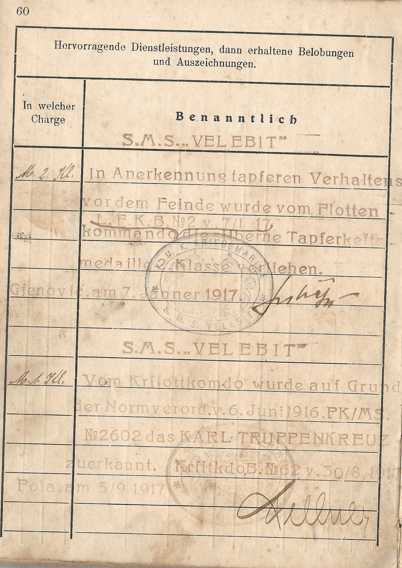 60
Hervorragende Dienstleistungen, dann erhaltene Belobungen
und Auszeichnungen.
In welcher
Charge
Benanntlich
S.M.S. „VELEBIT"
M. 2. Kl.
In Anerkennung tapferen Verhaltens
vor dem Feinde wurde vom Flotten-
L.F.K.B. №2 v. 7/1 17
kommando die silberne Tapferkeits
medaille Klasse verliehen.
Gjenović, am 7. Jänner 1917.
S.M.S. „VELEBIT"
M. 1. Kl.
Vom Krflottkomdo wurde auf Grund
der Normverord. v. 6. Juni 1916. PK/MS.
№2602 das KARL TRUPPENKREUZ
zuerkannt. Krfltkdo B. №62 v. 30/8. 1917
Pola, am 5/9 1917